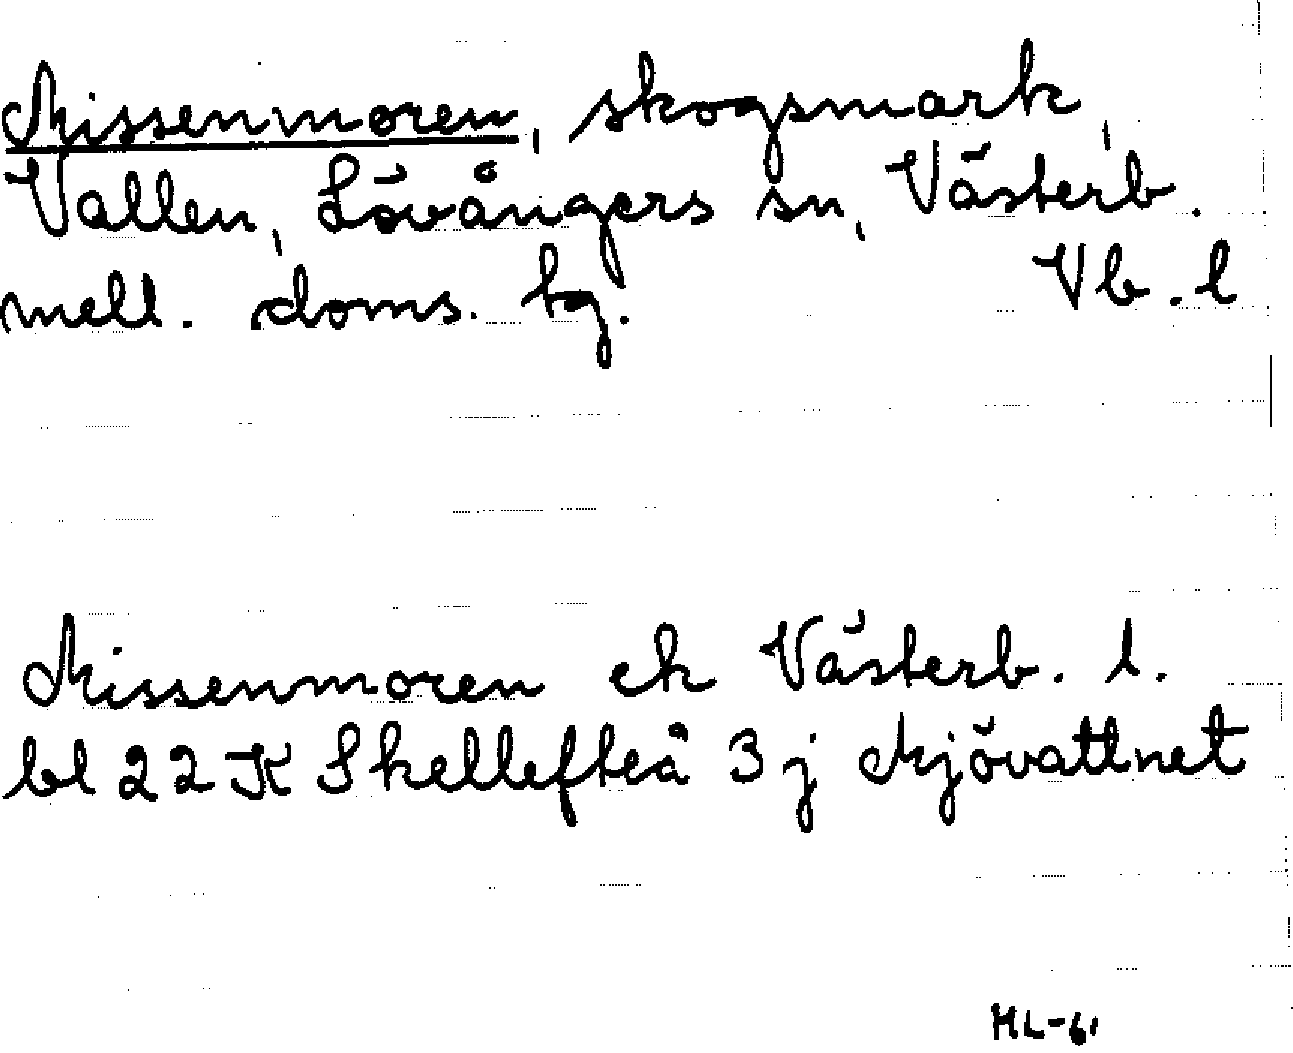 Missenmoren, skogsmark,
Vallen, Lövångers sn, Västerb.
mell. doms. hg. Vb. l
Missenmoren ek Västerb. l.
bl 22 K Skellefteå 3 j Mjövattnet
ML-61